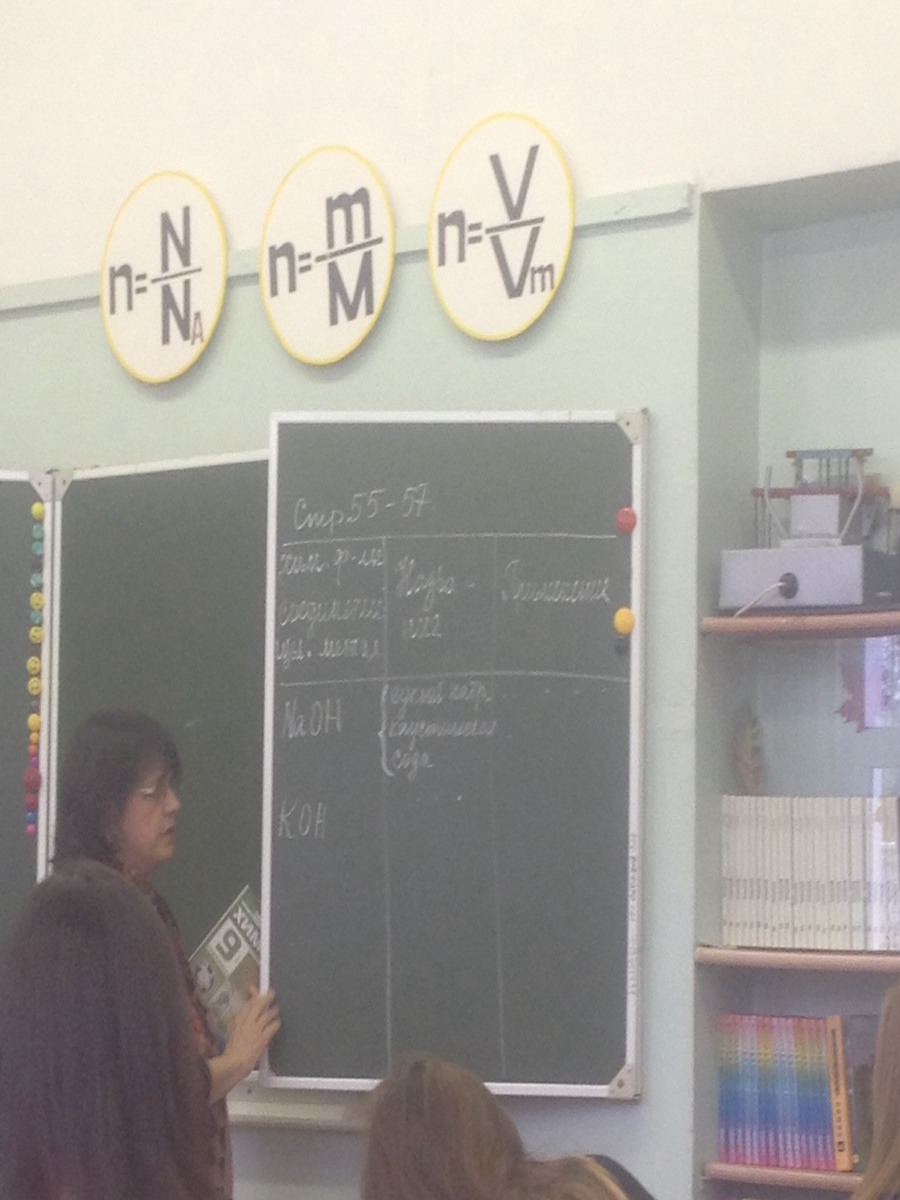 n=N/NA
n=m/M
n=V/Vm
Стр 55-57
хим. ф-лы
соединений
щел. металл.
Назва-
ния
Применение
NaOH
едкий натр,
каустическая
сода
KOH
ХИМИЯ
9